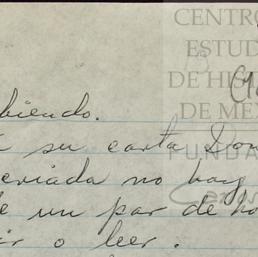 CENTRO
ESTUD
DE HIS
DE MÉX
FUNDA
biendo.
su carta Don
criada no hay
e un par de ho
ir o leer.